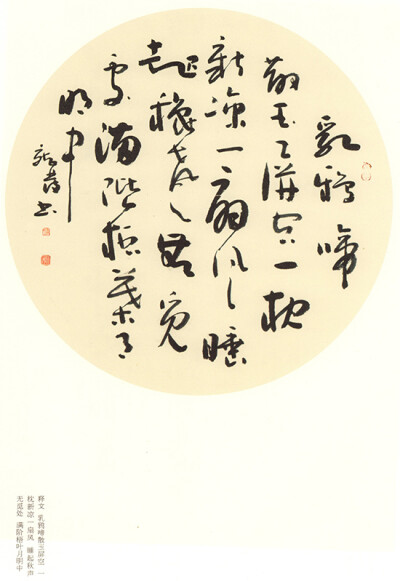 乳鴉啼
散玉屏空一枕
新凉一扇风睡
起秋声無覓
处满階梧葉月
明中
书
释文 乳鸦啼散玉屏空 一
枕新凉一扇风 睡起秋声
无觅处 满阶梧叶月明中